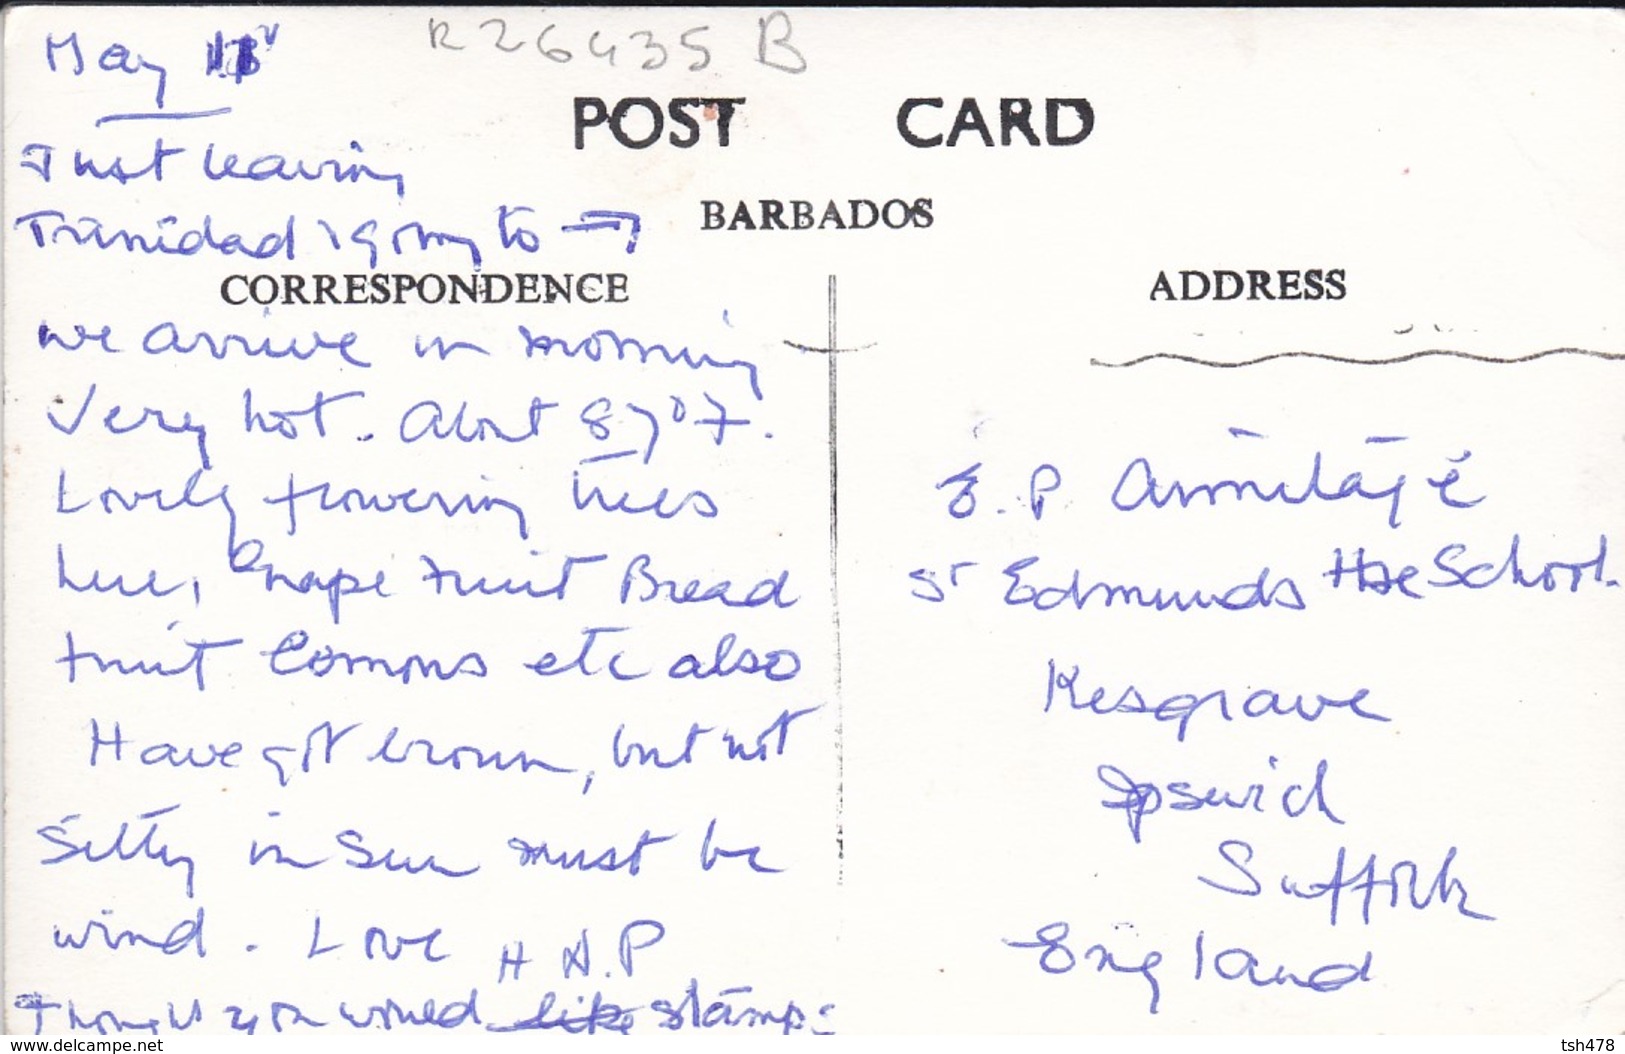 R26435 B
May
POST CARD
Just leaving
Trinidad & going to →
BARBADOS
CORRESPONDENCE
ADDRESS
we arrive in morning
Very hot. About 87° F.
Lovely flowering trees
here, Grape fruit Bread
fruit Lemons etc also
Have got brown, but not
sitting in sun must be
wind. Love H.P
Thought you would like stamps
E. P. Armitage
St Edmunds Hse School.
Kesgrave
Ipswich
Suffolk
England
www.delcampe.net
tsh478